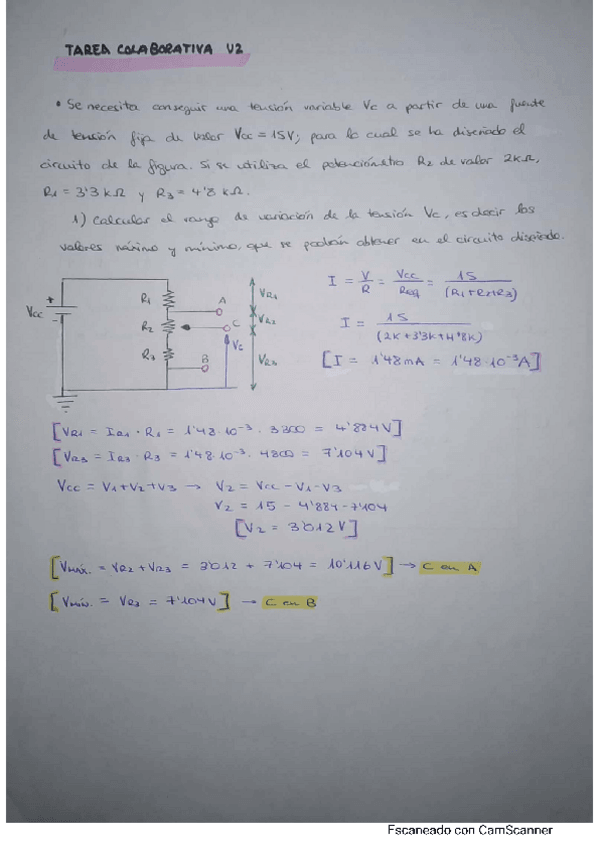 TAREA COLABORATIVA U2
• Se necesita conseguir una tensión variable Vc a partir de una fuente
de tensión fija de valor Vcc = 15V; para lo cual se ha diseñado el
circuito de la figura. Si se utiliza el potenciómetro R2 de valor 2kΩ,
R1 = 3'3 kΩ y R3 = 4'8 kΩ.
1) Calcular el rango de variación de la tensión Vc, es decir los
valores máximo y mínimo, que se podrán obtener en el circuito diseñado.
I = V/R = Vcc/Req = 15/(R1+R2+R3)
I = 15/(2k+3'3k+4'8k)
[I = 1'48mA = 1'48·10⁻³A]
+
Vcc
-
R1
R2
R3
A
C
B
Vc
VR1
VR2
[VR1 = IR1 · R1 = 1'48·10⁻³ · 3300 = 4'884V]
[VR3 = IR3 · R3 = 1'48·10⁻³ · 4800 = 7'104V]
Vcc = V1+V2+V3 → V2 = Vcc - V1 - V3
V2 = 15 - 4'884 - 7'104
[V2 = 3'012V]
[Vmáx. = VR2 + VR3 = 3'012 + 7'104 = 10'116V] → C en A
[Vmín. = VR3 = 7'104V] → C en B
Escaneado con CamScanner